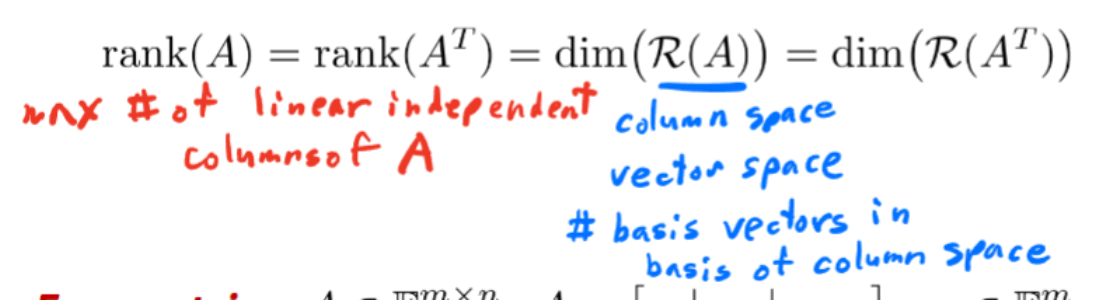 rank(A) = rank(Aᵀ) = dim(ℛ(A)) = dim(ℛ(Aᵀ))
max # of linear independent
columns of A
column space
vector space
# basis vectors in
basis of column space